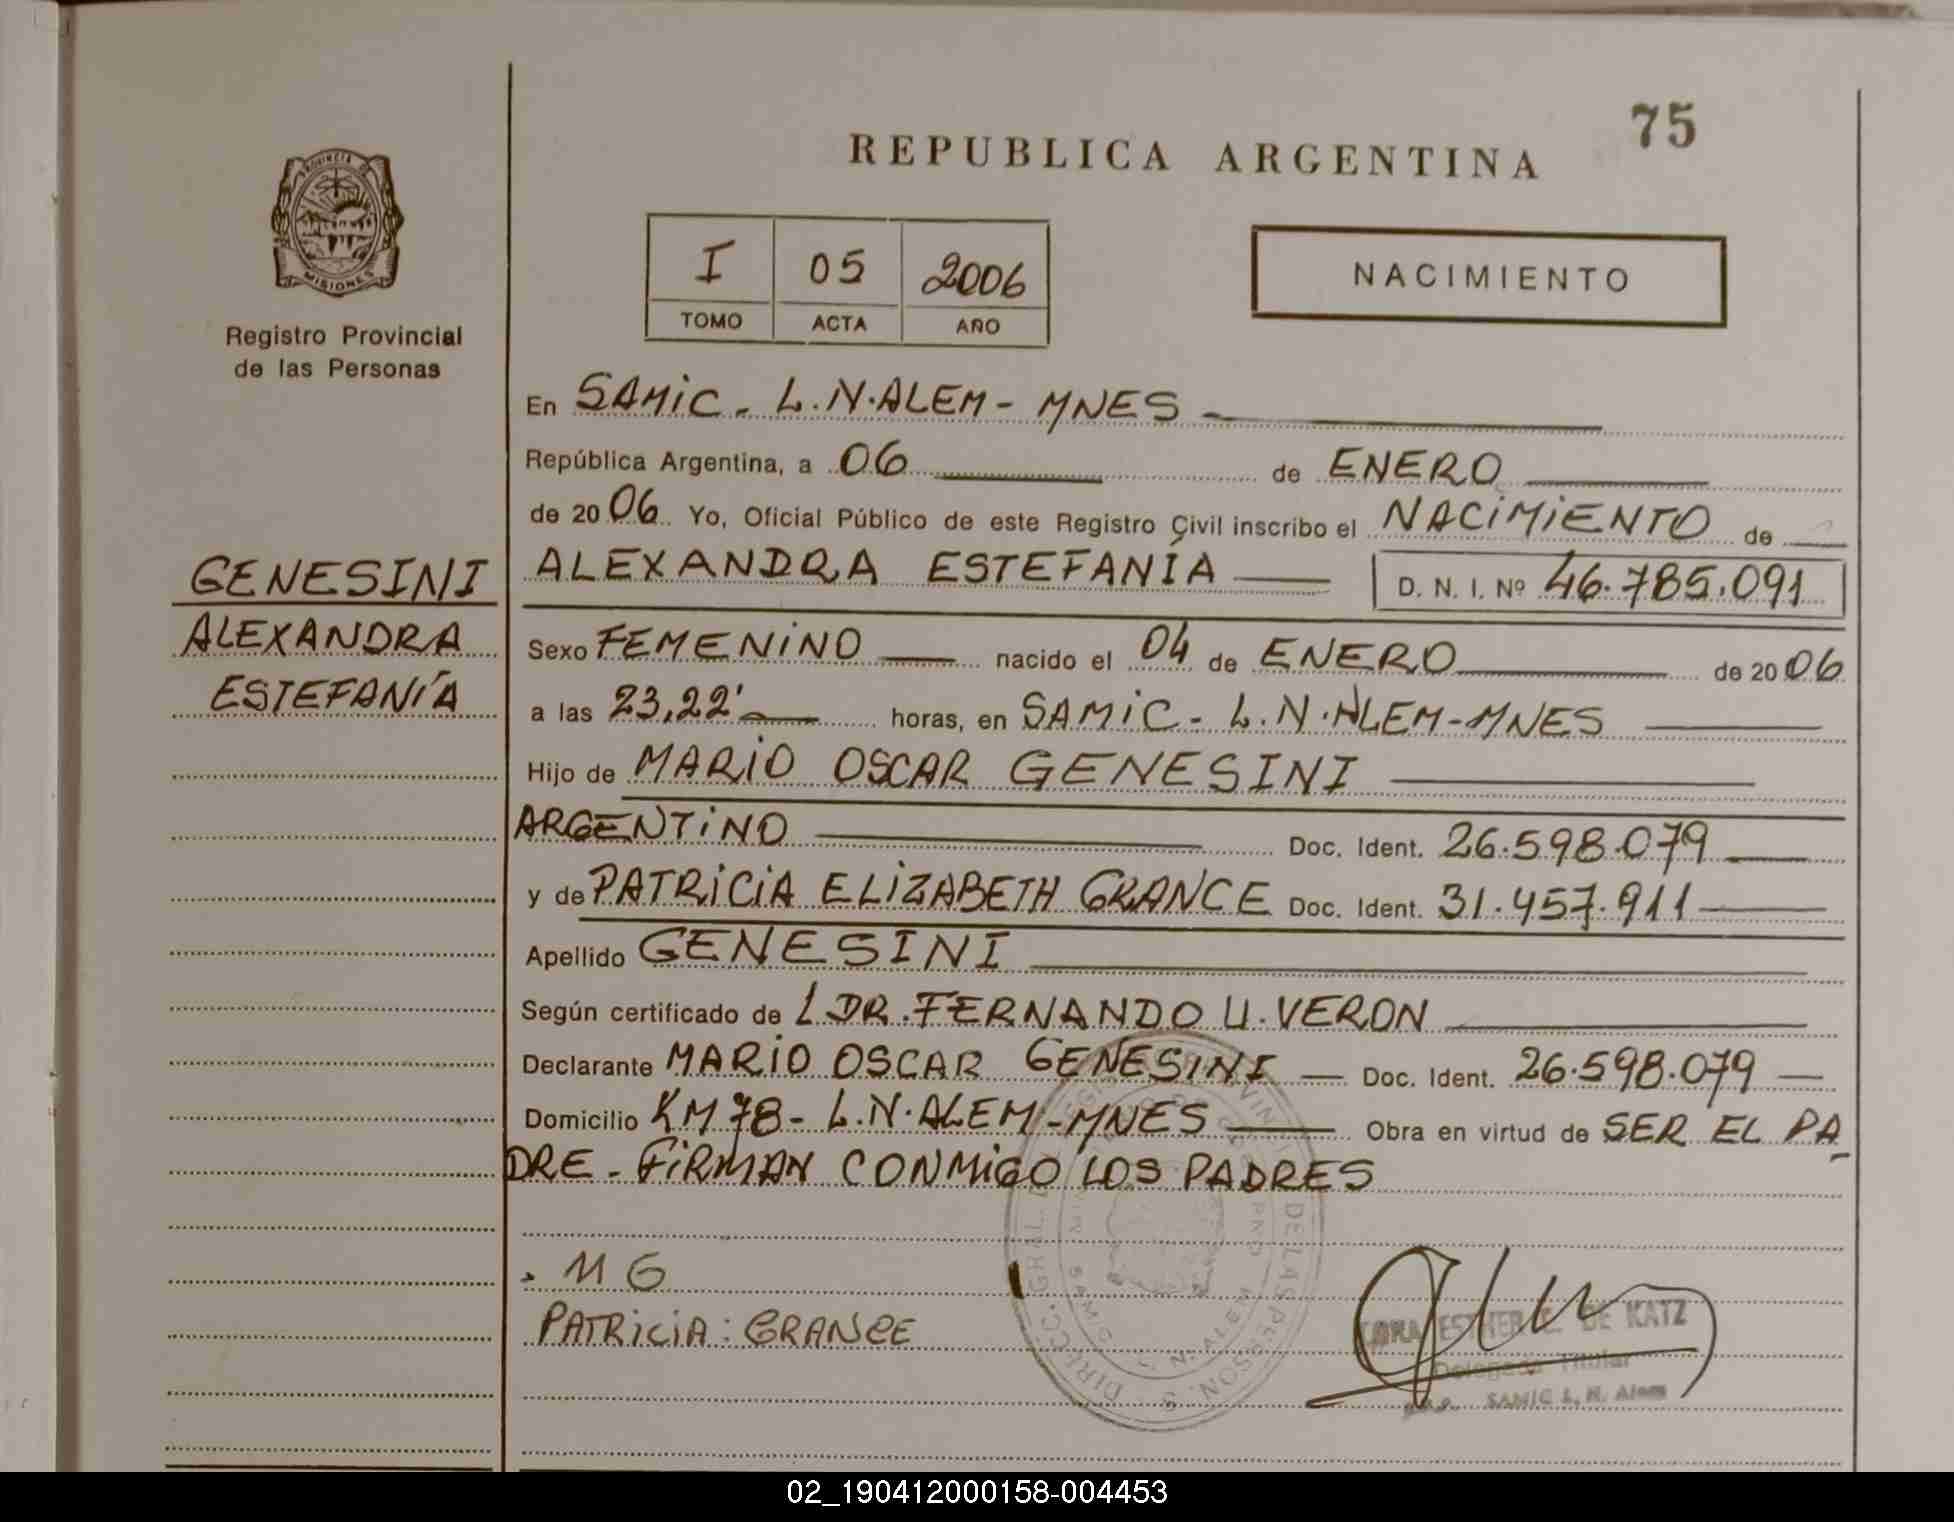 75
REPUBLICA ARGENTINA
PROVINCIA DE
MISIONES
Registro Provincial
de las Personas
I 05 2006
TOMO ACTA AÑO
NACIMIENTO
GENESINI
ALEXANDRA
ESTEFANÍA
En SAMIC - L.N.ALEM - MNES
República Argentina, a 06 de ENERO
de 2006 Yo, Oficial Público de este Registro Civil inscribo el NACIMIENTO de
ALEXANDRA ESTEFANÍA D. N. I. Nº 46.785.091
Sexo FEMENINO nacido el 04 de ENERO de 2006
a las 23,22' horas, en SAMIC - L.N.ALEM-MNES
Hijo de MARIO OSCAR GENESINI
ARGENTINO Doc. Ident. 26.598.079
y de PATRICIA ELIZABETH GRANCE Doc. Ident. 31.457.911
Apellido GENESINI
Según certificado de L DR. FERNANDO U. VERON
Declarante MARIO OSCAR GENESINI Doc. Ident. 26.598.079
Domicilio KM 78 - L.N.ALEM-MNES Obra en virtud de SER EL PA-
DRE - FIRMAN CONMIGO LOS PADRES
M G
PATRICIA: GRANCE
ESTHER DE KATZ
Delegada Titular
SAMIC L. N. Alem
DIRECC. GRAL. DE LAS PERSONAS
L. N. ALEM
02_190412000158-004453